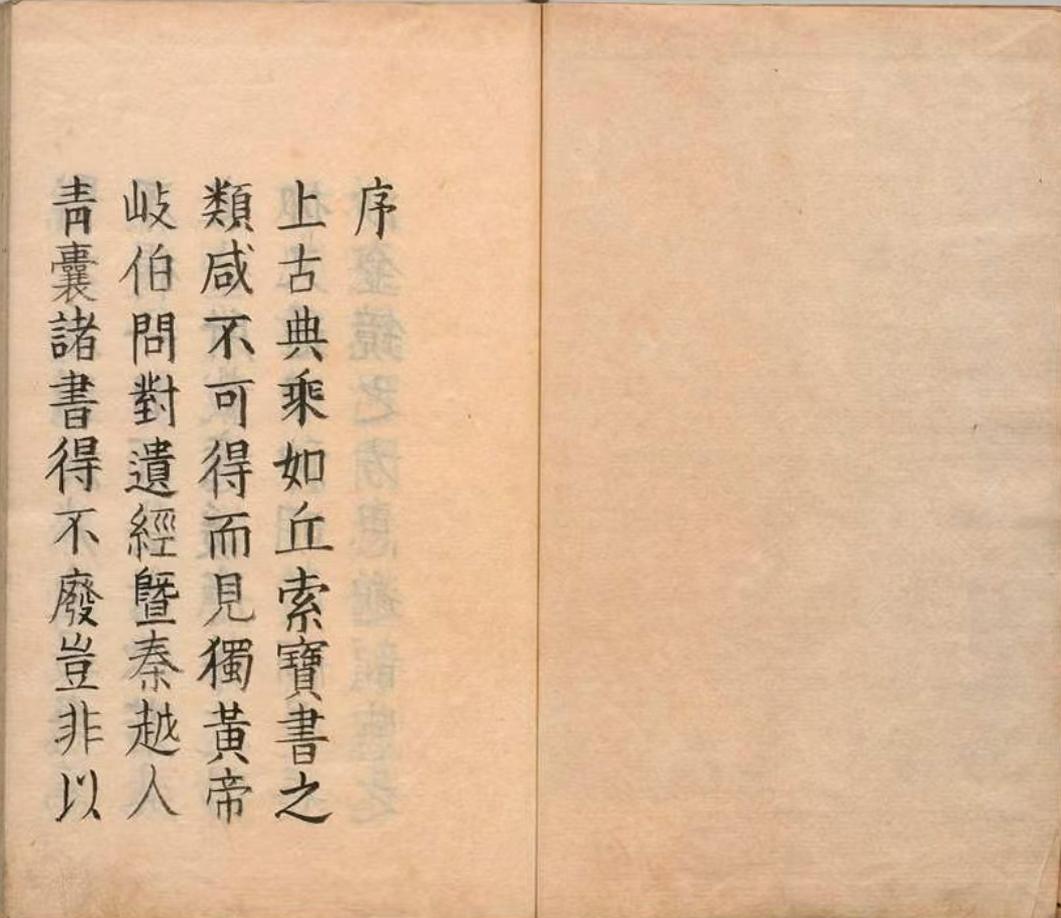 序
上古典乘如丘索寶書之
類咸不可得而見獨黃帝
岐伯問對遺經暨秦越人
青囊諸書得不廢豈非以